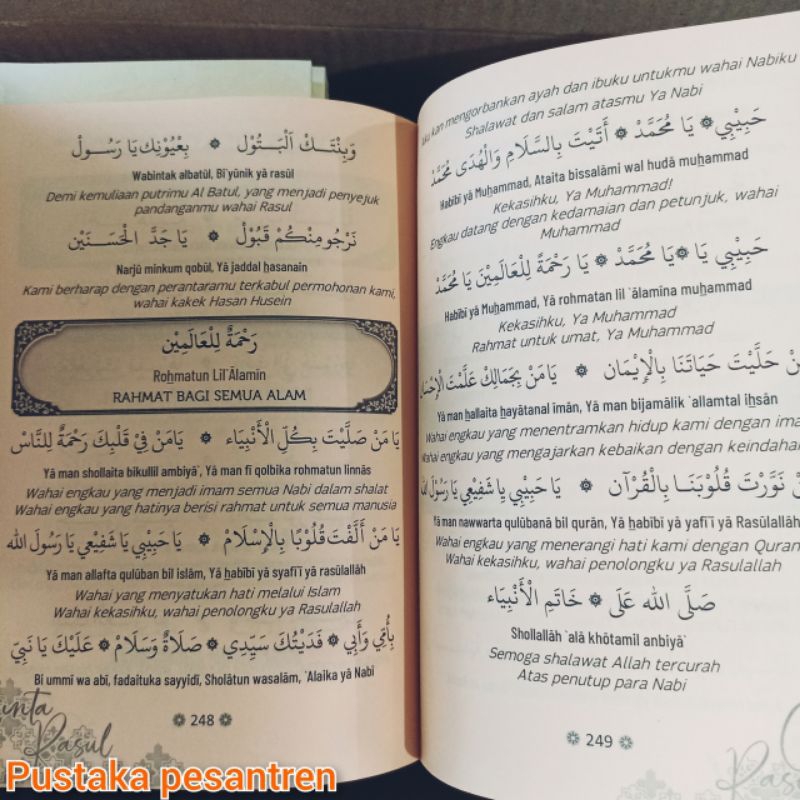 وَبِنْتَكْ الْبَتُوْل ۞ بِعْيُوْنِك يَا رَسُوْلْ
Wabintak albatūl, Bi`yūnik yā rasūl
Demi kemuliaan putrimu Al Batul, yang menjadi penyejuk
pandanganmu wahai Rasul
نَرْجُو مِنْكُمْ قَبُوْل ۞ يَا جَدَّ الْحَسَنَيْن
Narjū minkum qobūl, Yā jaddal ḥasanain
Kami berharap dengan perantaramu terkabul permohonan kami,
wahai kakek Hasan Husein
رَحْمَةٌ لِلْعَالَمِيْن
Roḥmatun Lil`Ālamīn
RAHMAT BAGI SEMUA ALAM
يَا مَنْ صَلَّيْتَ بِكُلِّ الْأَنْبِيَاء ۞ يَامَنْ فِيْ قَلْبِكَ رَحْمَةٌ لِلنَّاسْ
Yā man shollaita bikullil ambiyā`, Yā man fī qolbika rohmatun linnās
Wahai engkau yang menjadi imam semua Nabi dalam shalat
Wahai engkau yang hatinya berisi rahmat untuk semua manusia
يَا مَنْ أَلَّفْتَ قُلُوْبًا بِالْإِسْلَامْ ۞ يَا حَبِيْبِي يَا شَفِيْعِي يَا رَسُوْلَ الله
Yā man allafta qulūban bīl islām, Yā ḥabībī yā syafī`ī yā rasūlallāh
Wahai yang menyatukan hati melalui Islam
Wahai kekasihku, wahai penolongku ya Rasulallah
بِأُمِّي وَأَبِي ۞ فَدَيْتُكَ سَيِّدِي ۞ صَلَاةٌ وَسَلَامْ ۞ عَلَيْكَ يَا نَبِيّ
Bi ummī wa abī, fadaituka sayyidī, Sholātun wasalām, `Alaika yā Nabī
۞ 248 ۞
Rasul
kan mengorbankan ayah dan ibuku untukmu wahai Nabiku
Shalawat dan salam atasmu Ya Nabi
حَبِيْبِي ۞ يَا مُحَمَّدْ ۞ أَتَيْتَ بِالسَّلَامِ وَالْهُدَى مُحَمَّدْ
Ḥabībī yā Muḥammad, Ataita bissalāmi wal hudā muḥammad
Kekasihku, Ya Muhammad!
Engkau datang dengan kedamaian dan petunjuk, wahai
Muhammad
حَبِيْبِي يَا ۞ يَا مُحَمَّدْ ۞ يَا رَحْمَةً لِلْعَالَمِيْنَ يَا مُحَمَّدْ
Ḥabībī yā Muḥammad, Yā rohmatan lil `ālamīna muḥammad
Kekasihku, Ya Muhammad
Rahmat untuk umat, Ya Muhammad
حَلَّيْتَ حَيَاتَنَا بِالْإِيْمَان ۞ يَامَنْ بِجَمَالِكْ عَلَّمْتَ
Yā man ḥallaita ḥayātanal īmān, Yā man bijamālik `allamtal iḥsān
Wahai engkau yang menentramkan hidup kami dengan
Wahai engkau yang mengajarkan kebaikan dengan
نَوَّرْتَ قُلُوْبَنَا بِالْقُرْآن ۞ يَا حَبِيْبِي يَا شَفِيْعِي يَا رَسُوْلَ الله
Yā man nawwarta qulūbanā bīl qurān, Yā ḥabībī yā yafī`ī yā Rasūlallāh
Wahai engkau yang menerangi hati kami dengan
Wahai kekasihku, wahai penolongku ya Rasulallah
صَلَّى الله عَلَى ۞ خَاتَمِ الْأَنْبِيَاء
Shollallāh `alā khōtamil anbiyā`
Semoga shalawat Allah tercurah
Atas penutup para Nabi
۞ 249 ۞
Pustaka pesantren